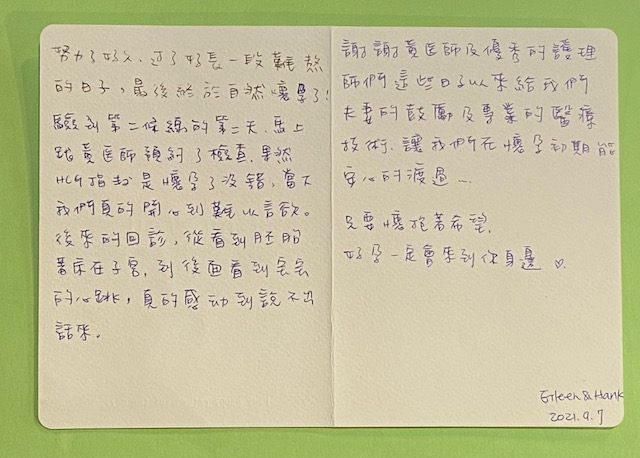 努力了好久、過了好長一段難熬
的日子，最後終於自然懷孕了!
驗到第二條線的第二天.馬上
跟黃医師預約了檢查.果然
HCG指數是懷孕了沒錯,當下
我們真的開心到難以言欲。
後來的回診,從看到胚胎
著床在子宮,到後面看到宝宝
的心跳,真的感动到說不出
話來.
謝謝黃医師及優秀的護理
師們這些日子以來給我們
夫妻的鼓勵及專業的醫療
技術、讓我們在懷孕初期能
安心的渡過...
只要懷抱著希望,
好孕一定會來到你身邊 ♡.
Eileen & Hank
2021.9.7